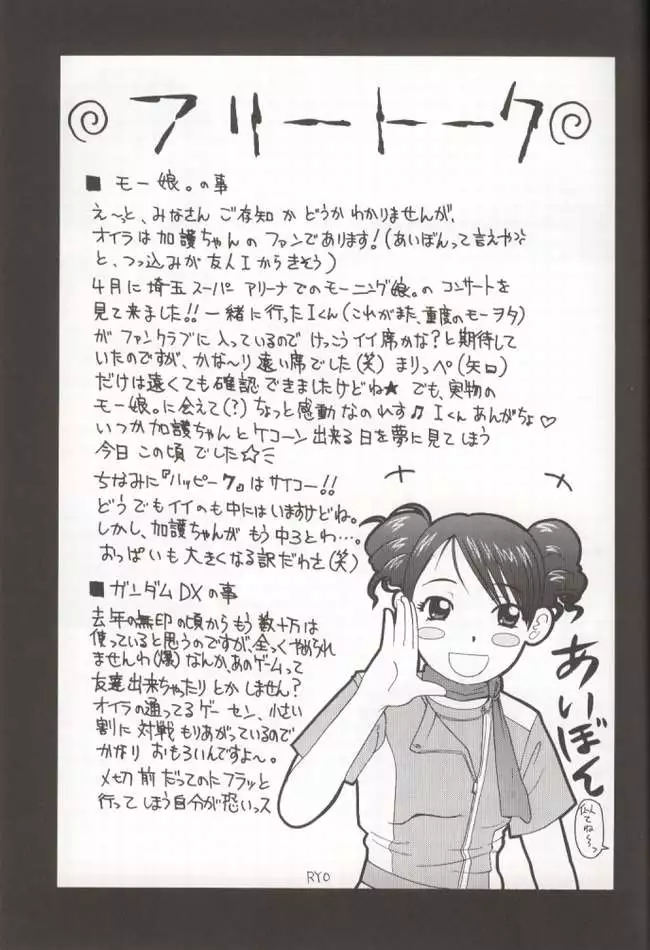 フリートーク
■ モー娘。の事
え〜っと、みなさん ご存知か どうか わかりませんが、
オイラは加護ちゃんのファンであります!(あいぼんって言えや
と、つっ込みが友人Iからきそう)
4月に埼玉スーパーアリーナでのモーニング娘。のコンサートを
見て来ました!!一緒に行ったIくん(これがまた、重度のモーヲタ)
がファンクラブに入っているので けっこうイイ席かな?と期待して
いたのですが、かな〜り遠い席でした(笑) まりっぺ(矢口)
だけは遠くても確認できましたけどね★ でも、実物の
モー娘。に会えて(?)ちょっと感動なのれす♫ Iくんあんがちょ♡
いつか加護ちゃんとケコーン出来る日を夢に見てしまう
今日この頃でした☆ミ
ちなみに『ハッピー7』はサイコー!!
どうでもイイのも中にはいますけどね。
しかし、加護ちゃんが もう中3とわ…。
■ ガンダムDXの事
去年の無印の頃からもう数十万は
使っていると思うのですが、全っくやめられ
ませんわ(爆)なんか、あのゲームって
友達出来ちゃったりとかしません?
オイラの通ってるゲーセン、小さい
割に対戦もりあがっているので
かなりおもろいんですよ〜。
〆切前だってのにフラッと
行ってしまう自分が恐いっス
あいぼん
似てね〜っ
RYO